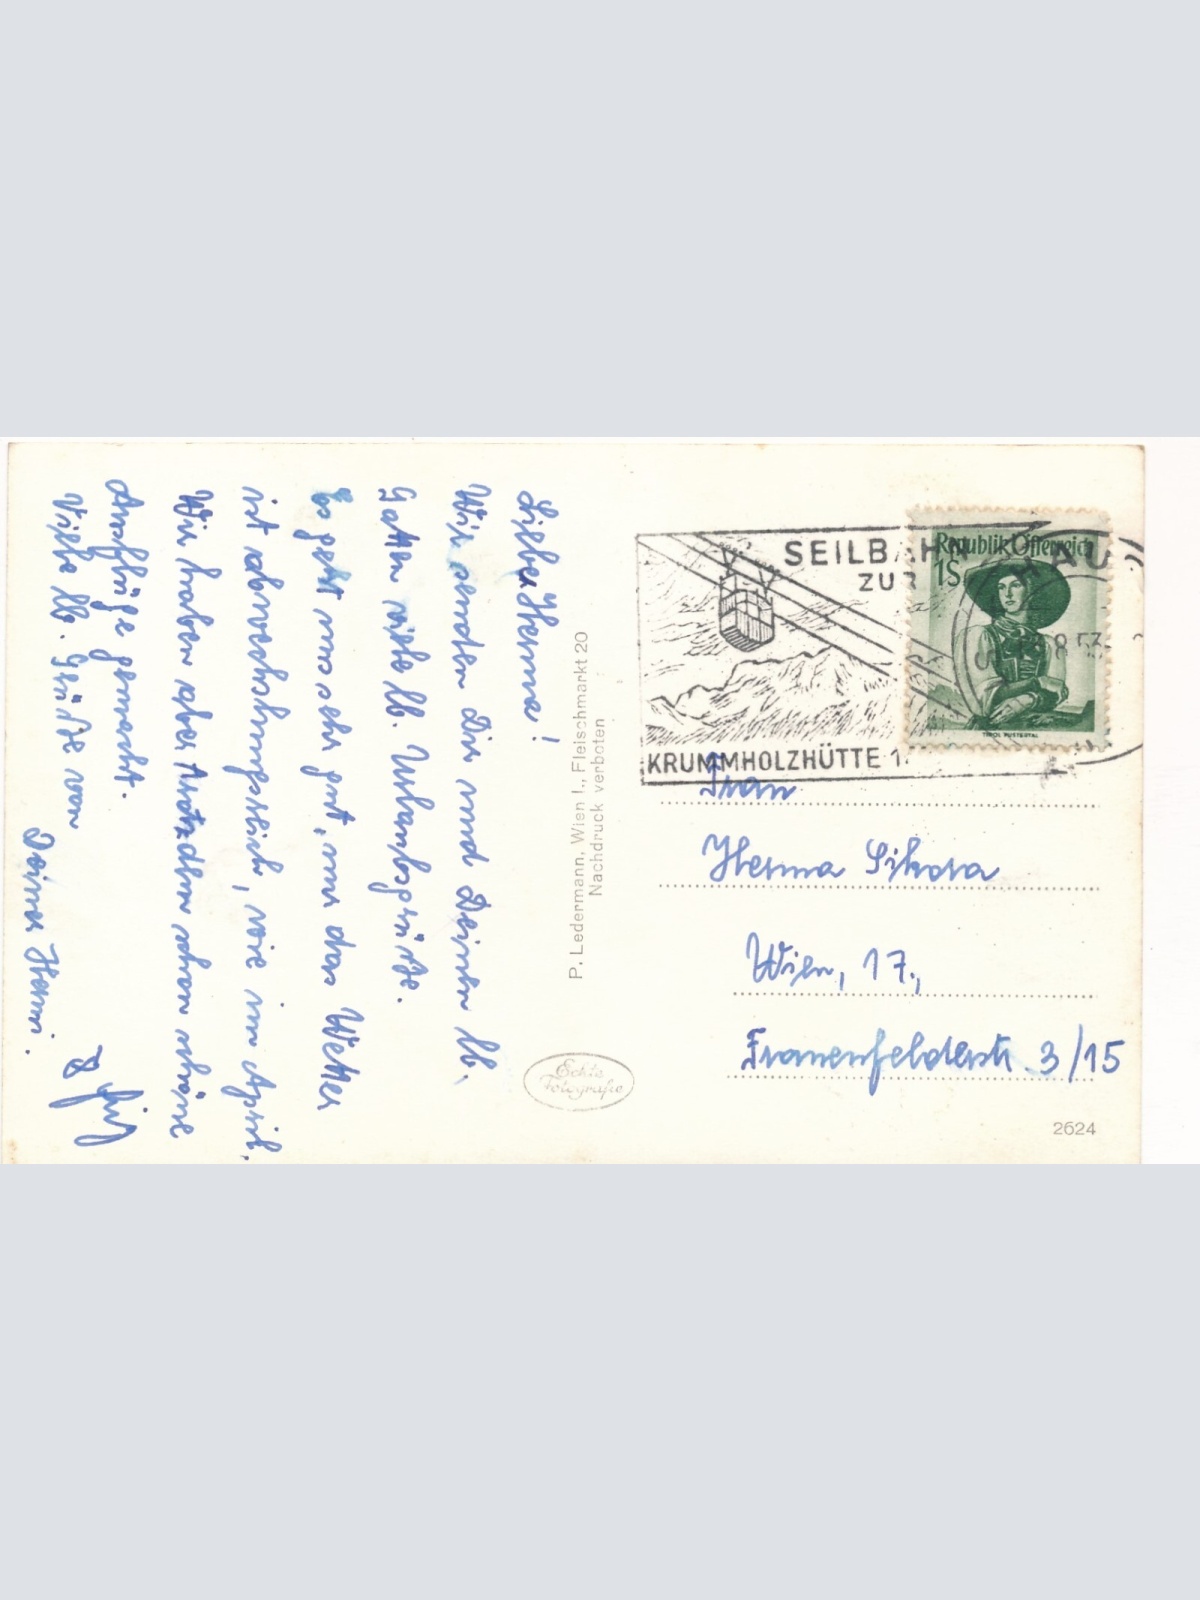 Liebe Herma!
Wir senden Dir und Deinen lb.
Gatten viele lb. Urlaubsgrüße.
Es geht uns sehr gut, nur das Wetter
ist abwechslungsreich, wie im April.
Wir haben aber trotzdem schon schöne
Ausflüge gemacht.
Viele lb. Grüße von
Deiner Hermi.
P. Ledermann, Wien I., Fleischmarkt 20
Nachdruck verboten
Echte
Fotografie
SEILBAHN
ZUR
KRUMMHOLZHÜTTE
Republik Österreich
1S
TIROL PUSTERTAL
8 53
Frau
Herma Sikora
Wien, 17.,
Frauenfelderstr. 3/15
2624